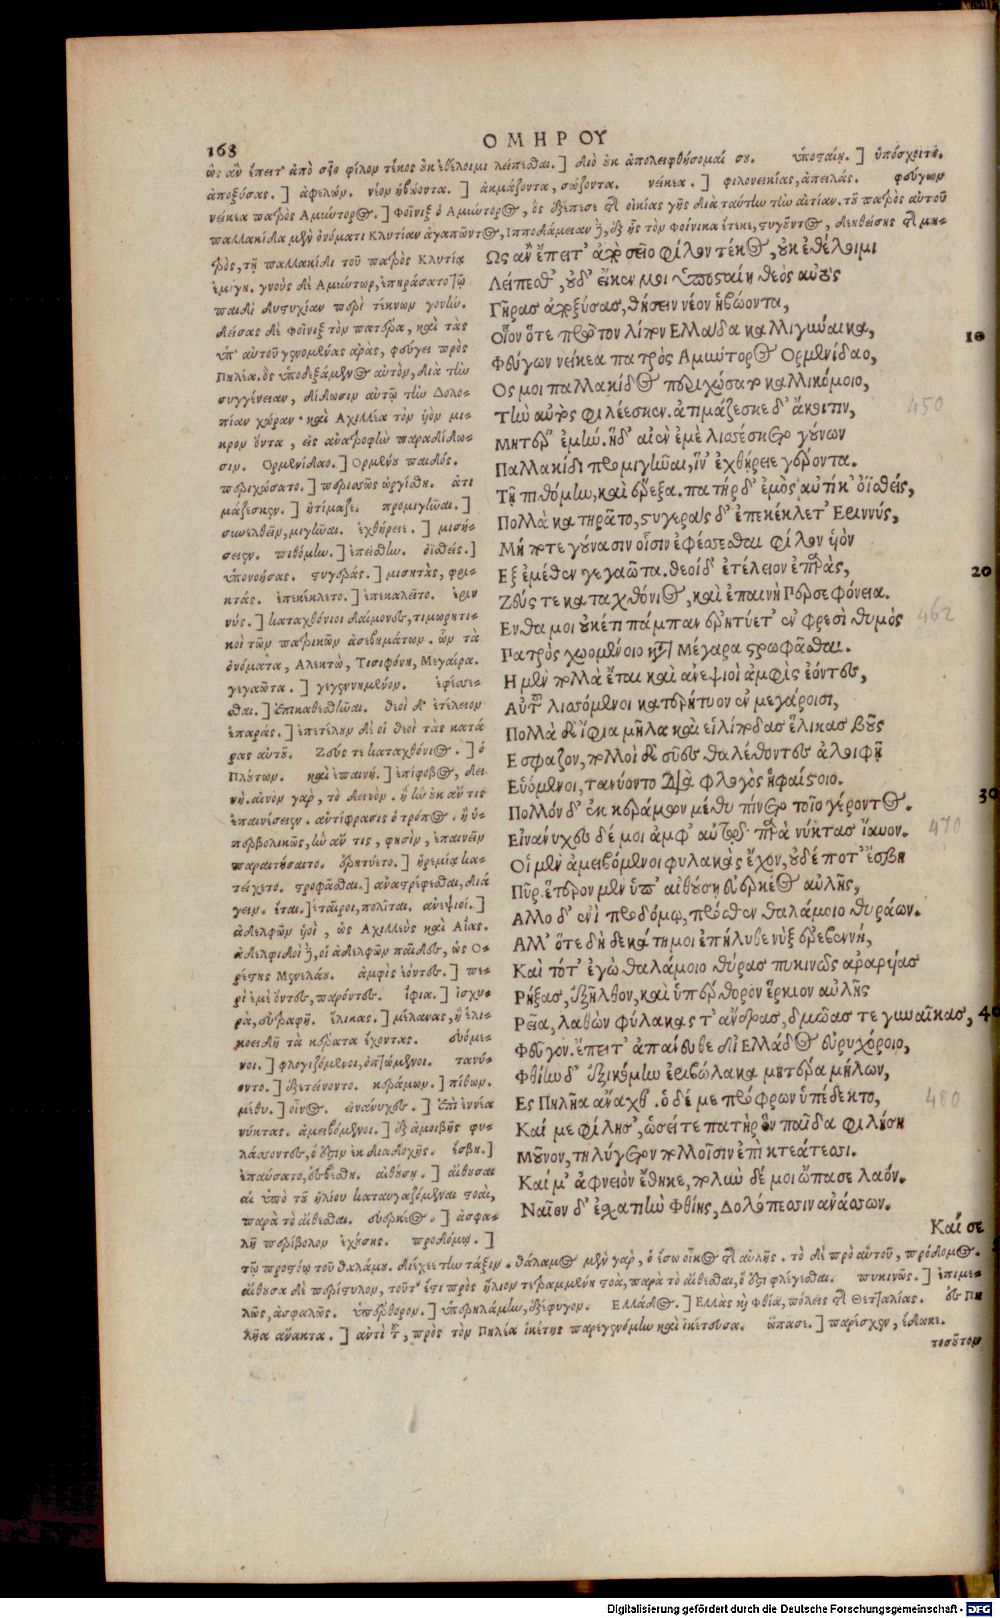 168
ΟΜΗΡΟΥ
ὣς ἂν ἔπειτ' ἀπὸ σεῖο φίλον τέκος οὐκ ἐθέλοιμι λείπεσθαι.] διὸ οὐκ ἀπολειφθήσομαί σου. ὑποσταίη.] ὑπόσχοιτο.
ἀποξύσας.] ἀφελών. νέον ἡβώοντα.] ἀκμάζοντα, σώζοντα. νείκεα.] φιλονεικίας, ἀπειλάς. φεύγων
νείκεα πατρὸς Ἀμύντορος.] Φοῖνιξ ὁ Ἀμύντορος, ὃς ἐξέπεσε τῆς οἰκίας γῆς διὰ ταύτην τὴν αἰτίαν. τοῦ πατρὸς αὐτοῦ
παλλακίδα μὲν ὀνόματι Κλυτίαν ἀγαπῶντος, Ἱπποδάμειαν δὲ, ἐξ ἧς τὸν Φοίνικα ἔτεκε, στυγοῦντος, δεηθείσης τῆς μη-
τρὸς, τῇ παλλακίδι τοῦ πατρὸς Κλυτίᾳ
ἐμίγη. γνοὺς δὲ Ἀμύντωρ, ἐπηράσατο τῷ
παιδὶ δυστυχίαν περὶ τέκνων γονήν.
δείσας δὲ Φοῖνιξ τὸν πατέρα, καὶ τὰς
ὑπ' αὐτοῦ γενομένας ἀρὰς, φεύγει πρὸς
Πηλέα. ὃς ὑποδεξάμενος αὐτὸν, διὰ τὴν
συγγένειαν, δίδωσιν αὐτῷ τὴν Δολο-
πίαν χώραν· καὶ Ἀχιλλέα τὸν υἱὸν μι-
κρὸν ὄντα, εἰς ἀνατροφὴν παραδίδω-
σιν. Ὀρμενίδαο.] Ὀρμένου παιδός.
περιχώσατο.] περισσῶς ὠργίσθη. ἀτι
μάζεσκεν.] ἠτίμαζε. προμιγῆναι.]
συνελθεῖν, μιγῆναι. ἐχθήρειε.] μισή-
σειεν. πιθόμην.] ἐπείσθην. ὀϊσθείς.]
ὑπονοήσας. στυγεράς.] μισητὰς, φρι-
κτάς. ἐπεκέκλετο.] ἐπεκαλεῖτο. ἐριν
νύς.] καταχθόνιοι δαίμονες, τιμωρητι-
κοὶ τῶν πατρικῶν ἀσεβημάτων. ὧν τὰ
ὀνόματα, Ἀληκτὼ, Τισιφόνη, Μεγαίρα.
γεγαῶτα.] γεγεννημένον. ἐφέσσε-
σθαι.] ἐπικαθεσθῆναι. θεοὶ δ' ἐτέλειον
ἐπαράς.] ἐπετέλουν δὲ οἱ θεοὶ τὰς κατά
ρας αὐτοῦ. Ζεύς τε καταχθόνιος.] ὁ
Πλούτων. καὶ ἐπαινή.] ἐπίφοβος, δει
νή. αἰνὸν γὰρ, τὸ δεινὸν. ἢ ἣν οὐκ ἄν τις
ἐπαινέσειεν. ἀντίφρασις ὁ τρόπος. ἢ ὑ-
περβολικῶς, ἣν ἄν τις, φησὶν, ἐπαινεῖν
παραιτήσαιτο. ἐρητύετο.] ἠρεμίᾳ κα-
τείχετο. στροφᾶσθαι.] ἀναστρέφεσθαι, διά
γειν. ἔται.] ἑταῖροι, πολῖται. ἀνεψιοί.]
ἀδελφῶν υἱοὶ, ὡς Ἀχιλλεὺς καὶ Αἴας.
ἀδελφιδοῖ δὲ, οἱ ἀδελφῶν παῖδες, ὡς Ὀ-
ρέστης Μενελάου. ἀμφὶς ἐόντες.] πε-
ρὶ ἐμὲ ὄντες, παρόντες. ἴφια.] ἰσχυ-
ρὰ, εὐτραφῆ. ἕλικας.] μέλανας, ἢ ἑλι-
κοειδῆ τὰ κέρατα ἔχοντας. εὑόμε-
νοι.] φλογιζόμενοι, ὀπτώμενοι. τανύ-
οντο.] ἐξετείνοντο. κεράμων.] πίθων.
μέθυ.] οἶνος. εἰνάνυχες.] ἐπὶ ἐννέα
νύκτας. ἀμειβόμενοι.] ἐξ ἀμοιβῆς φυ-
λάσσοντες, ὅ ἐστιν ἐκ διαδοχῆς. ἔσβη.]
ἐπαύσατο, ἐσβέσθη. αἰθούσῃ.] αἴθουσαι
αἱ ὑπὸ τοῦ ἡλίου καταυγαζόμεναι στοαὶ,
παρὰ τὸ αἴθεσθαι. εὐερκέος.] ἀσφα-
λῆ περίβολον ἐχούσης. προδόμῳ.]
Ὣς ἂν ἔπειτ' ἀπὸ σεῖο φίλον τέκος, οὐκ ἐθέλοιμι
Λείπεσθ', οὐδ' εἴκεν μοι ὑποσταίη θεὸς αὐτὸς
Γῆρας ἀποξύσας, θήσειν νέον ἡβώοντα,
Οἷον ὅτε πρῶτον λίπον Ἑλλάδα καλλιγύναικα, 10
Φεύγων νείκεα πατρὸς Ἀμύντορος Ὀρμενίδαο,
Ὅς μοι παλλακίδος περιχώσατο καλλικόμοιο,
Τὴν αὐτὸς φιλέεσκεν. ἀτιμάζεσκε δ' ἄκοιτιν, 450
Μητέρ' ἐμήν. ἡ δ' αἰὲν ἐμὲ λισσέσκετο γούνων
Παλλακίδι προμιγῆναι, ἵν' ἐχθήρειε γέροντα.
Τῇ πιθόμην, καὶ ἔρεξα. πατὴρ δ' ἐμὸς αὐτίκ' ὀϊσθείς,
Πολλὰ κατηρᾶτο, στυγερὰς δ' ἐπεκέκλετ' Ἐριννύς,
Μή ποτε γούνασιν οἷσιν ἐφέσσεσθαι φίλον υἱὸν
Ἐξ ἐμέθεν γεγαῶτα. θεοὶ δ' ἐτέλειον ἐπαράς, 20
Ζεύς τε καταχθόνιος, καὶ ἐπαινὴ Περσεφόνεια.
Ἔνθα μοι οὐκέτι πάμπαν ἐρητύετ' ἐν φρεσὶ θυμὸς 462
Πατρὸς χωομένοιο κατὰ Μέγαρα στρωφᾶσθαι.
Ἦ μὲν πολλὰ ἔται καὶ ἀνεψιοὶ ἀμφὶς ἐόντες,
Αὐτοῦ λισσόμενοι κατερήτυον ἐν μεγάροισι,
Πολλὰ δὲ ἴφια μῆλα καὶ εἰλίποδας ἕλικας βοῦς
Ἔσφαζον, πολλοὶ δὲ σύες θαλέθοντες ἀλοιφῇ
Εὑόμενοι, τανύοντο διὰ φλογὸς ἡφαίστοιο.
Πολλὸν δ' ἐκ κεράμων μέθυ πίνετο τοῖο γέροντος. 30
Εἰνάνυχες δέ μοι ἀμφ' αὐτῷ παρὰ νύκτας ἴαυον. 470
Οἱ μὲν ἀμειβόμενοι φυλακὰς ἔχον, οὐδέ ποτ' ἔσβη
Πῦρ. ἕτερον μὲν ὑπ' αἰθούσῃ εὐερκέος αὐλῆς,
Ἄλλο δ' ἐνὶ προδόμῳ, πρόσθεν θαλάμοιο θυράων.
Ἀλλ' ὅτε δὴ δεκάτη μοι ἐπήλυθε νὺξ ἐρεβεννή,
Καὶ τότ' ἐγὼ θαλάμοιο θύρας πυκινῶς ἀραρυίας
Ῥήξας, ἐξῆλθον, καὶ ὑπέρθορον ἕρκιον αὐλῆς
Ῥεῖα, λαθὼν φύλακας τ' ἄνδρας, δμωάς τε γυναῖκας, 40
Φεῦγον. ἔπειτ' ἀπάνευθε δι' Ἑλλάδος εὐρυχόροιο,
Φθίην δ' ἐξικόμην ἐριβώλακα μητέρα μήλων,
Ἐς Πηλῆα ἄναχθ'. ὁ δέ με πρόφρων ὑπέδεκτο, 480
Καί με φίλησ', ὡσείτε πατὴρ ὃν παῖδα φιλήσῃ
Μοῦνον, τηλύγετον πολλοῖσιν ἐπὶ κτεάτεσσι.
Καί μ' ἀφνειὸν ἔθηκε, πολὺν δέ μοι ὤπασε λαόν.
Ναῖον δ' ἐσχατιὴν Φθίης, Δολόπεσσιν ἀνάσσων.
Καί σε
τῷ προστόῳ τοῦ θαλάμου. διέχει τὴν τάξιν. θάλαμος μὲν γὰρ, ὁ ἔσω οἶκος τῆς αὐλῆς. τὸ δὲ πρὸ αὐτοῦ, πρόδομος.
αἴθουσα δὲ περίστυλον, τοῦτ' ἔστι πρὸς ἥλιον τετραμμένη στοὰ, παρὰ τὸ αἴθεσθαι, ὅ ἐστι φλέγεσθαι. πυκινῶς.] ἐπιμε-
λῶς, ἀσφαλῶς. ὑπέρθορον.] ὑπερηλάμην, ἐξέφυγον. Ἑλλάδος.] Ἑλλὰς καὶ Φθία, πόλεις τῆς Θετταλίας. ἐς Πη
λῆα ἄνακτα.] ἀντὶ τοῦ, πρὸς τὸν Πηλέα ἱκέτης παρεγενόμην καὶ ἱκέτευσα. ὤπασε.] παρέσχεν, ἔδωκε.
τοσοῦτον
Digitalisierung gefördert durch die Deutsche Forschungsgemeinschaft - DFG